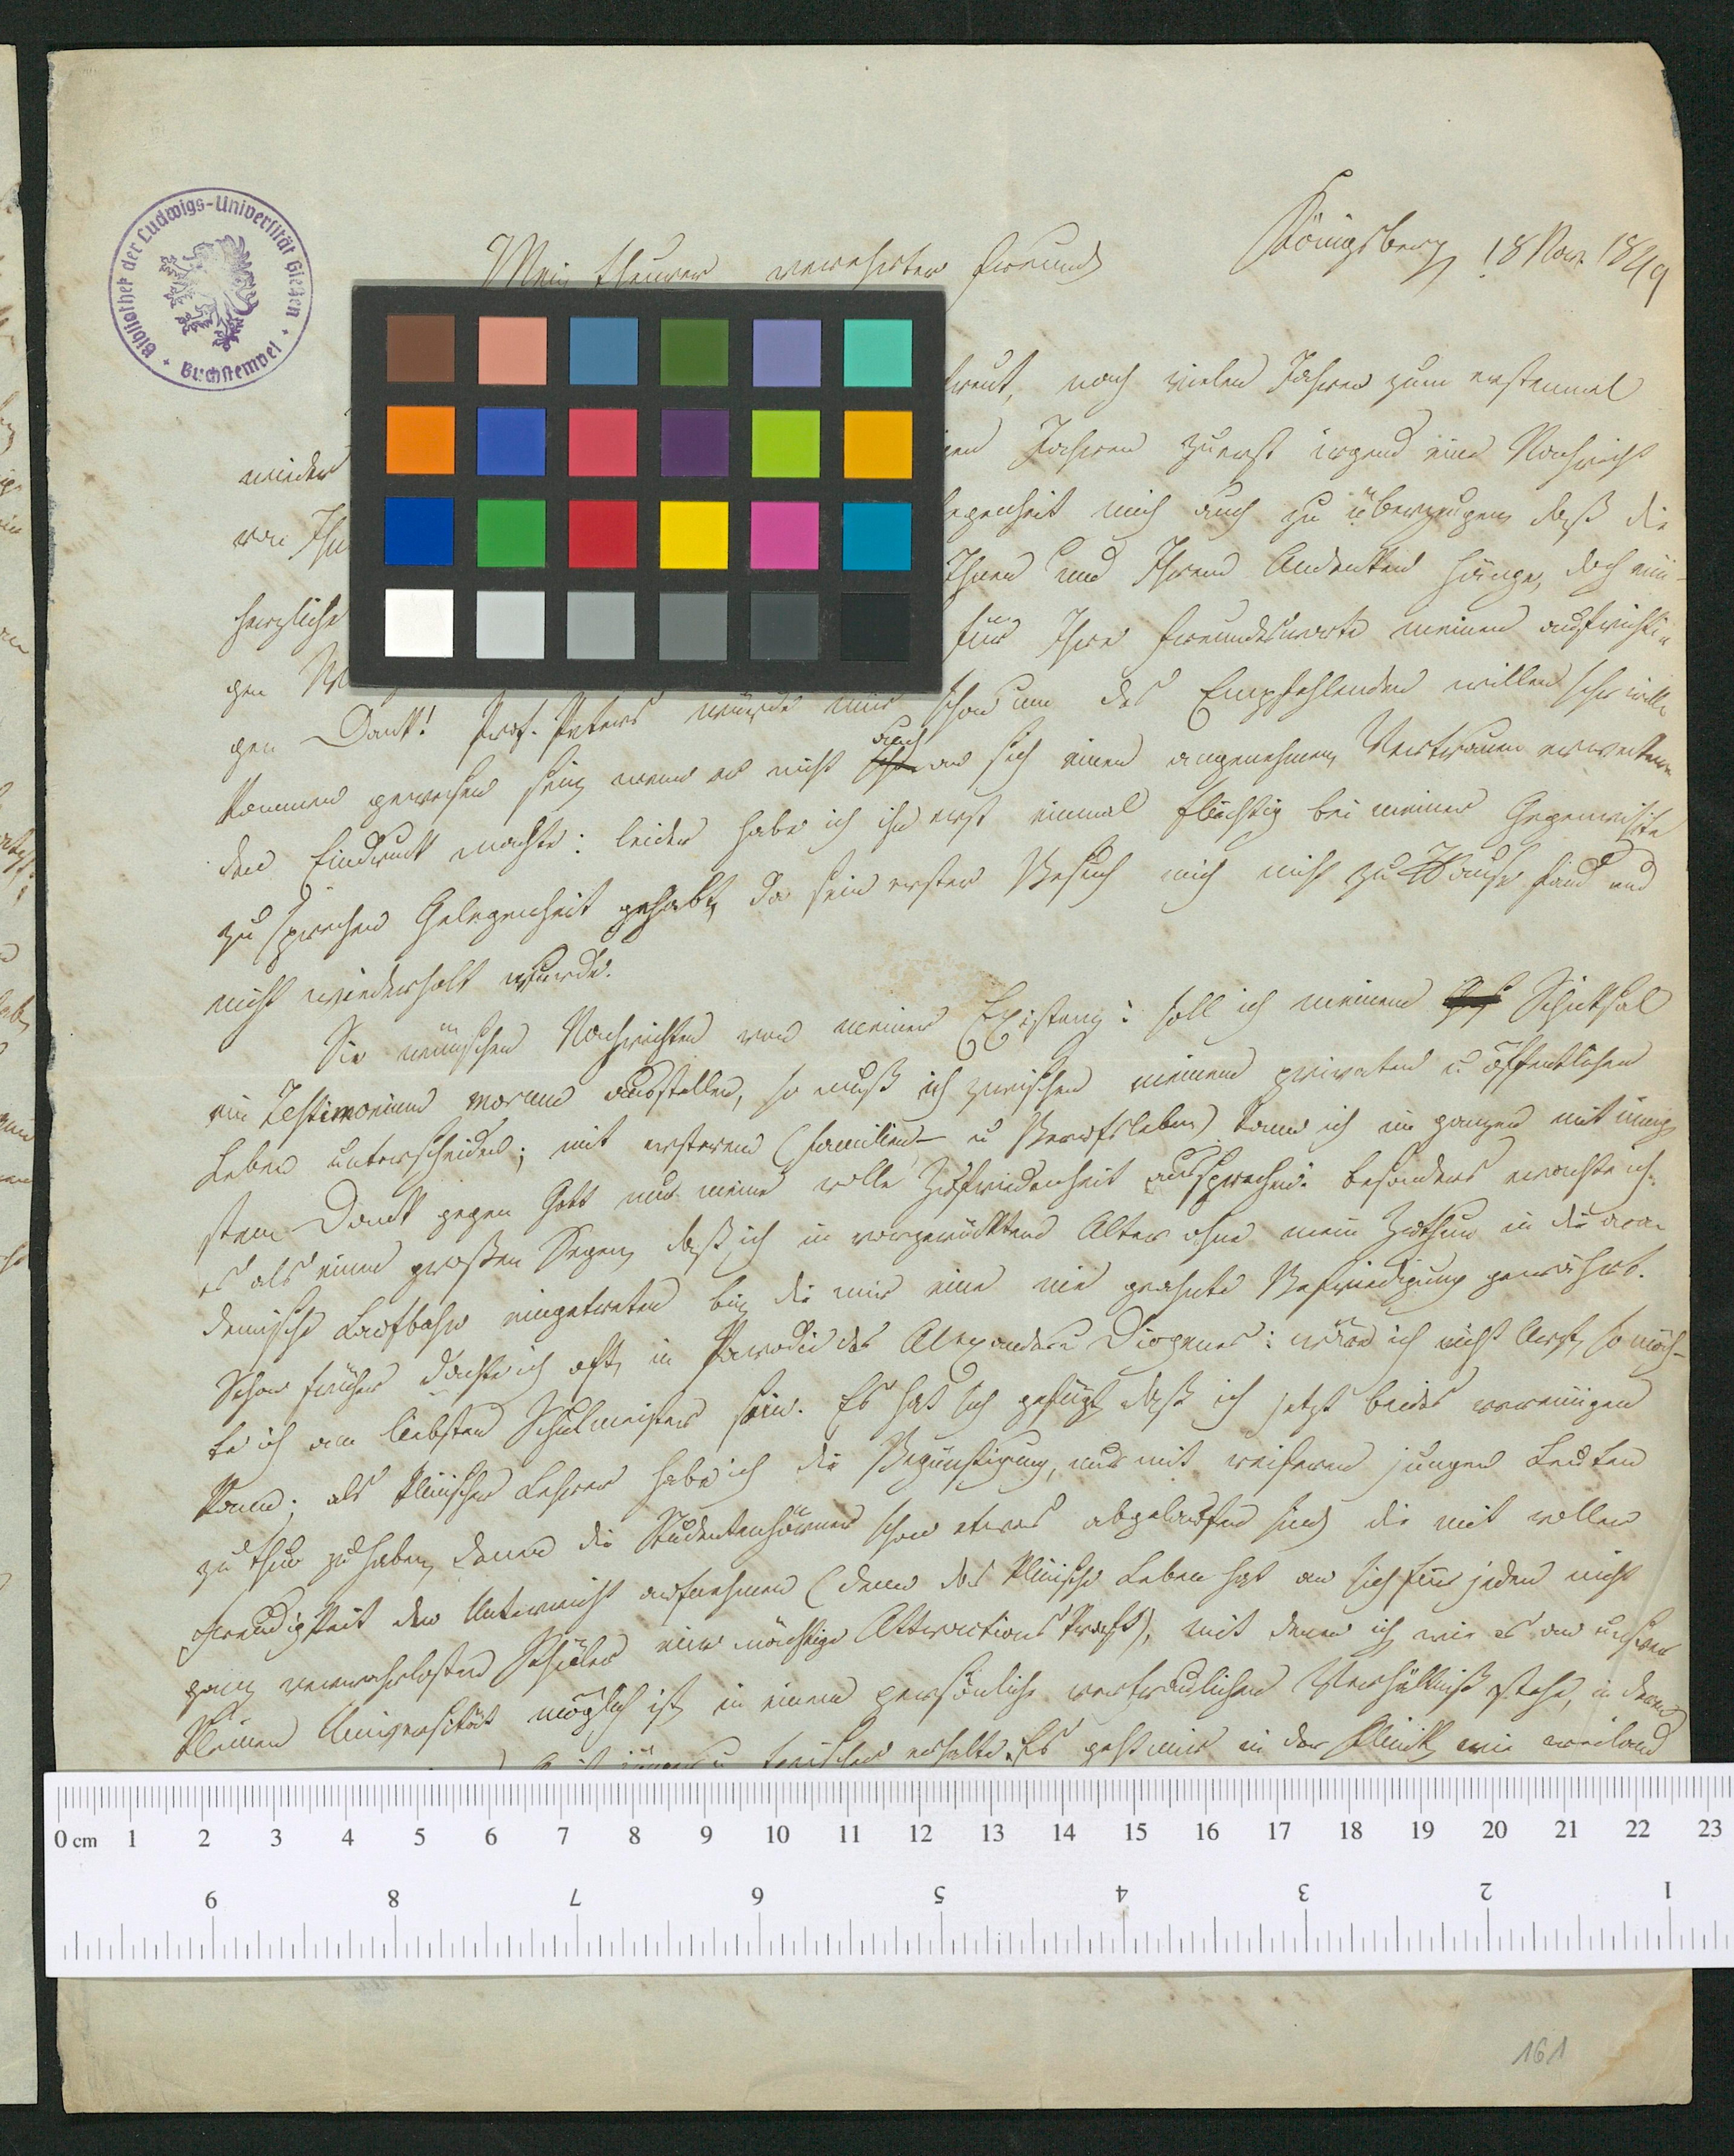 Bibliothek der Ludwigs-Universität Gießen
Buchstempel
Königsberg 18 Nov. 1849
Mein theurer verehrter Freund
freut, nach vielen Jahren zum erstenmal
wieder Jahren zuerst irgend eine Nachricht
von Ihn egenheit mich auch zu überzeugen daß die
herzliche Ihnen und Ihrem Andenken hänge, doch
für Ihre Freundesworte meinen aufrichti-
gen Dank! Prof. Peters würde mir schon um des Empfehlenden willen sehr will
kommen gewesen sein wenn er nicht auch an sich einen angenehmen Vertrauen erwecken
den Eindruck machte: leider habe ich ihn erst einmal flüchtig bei meiner Gegenvisite
zu sprechen Gelegenheit gehabt, da sein erster Besuch mich nicht zu Hause fand und
nicht wiederholt wurde.
Sie wünschen Nachrichten von meiner Existenz: soll ich meinem Schicksal
ein Testimonium morum ausstellen, so muß ich zwischen meinem privaten u öffentlichen
Leben unterscheiden; mit ersterem (Familien- u Berufsleben) kann ich im ganzen mit innig
stem Dank gegen Gott nur meine volle Zufriedenheit aussprechen: besonders erachte ich
es als einen großen Segen, daß ich in vorgerücktem Alter ohne mein Zuthun in die aca-
demische Laufbahn eingetreten bin, die mir eine nie geahnte Befriedigung gewährt.
Schon früher dachte ich oft, in Parodie des Alexander u Diogenes: wäre ich nicht Arzt, so möch-
te ich am liebsten Schulmeister sein. Es hat sich gefügt, daß ich jetzt beides vereinigen
kann; als klinischer Lehrer habe ich die Begünstigung, nur mit reiferen jungen Leuten
zu thun zu haben, denen die Studentenhörner schon etwas abgelaufen sind, die mit voller
Freudigkeit den Unterricht aufnehmen (denn das klinische Leben hat an sich für jeden nicht
ganz verwahrlosten Schüler eine mächtige Attractions Kraft), mit denen ich, wie es an unserer
kleinen Universität möglich ist, in einem persönliche vertraulichen Verhältniß stehe, in denen
erhalte. Es geht mir in der Klinik wie weiland
0 cm 1 2 3 4 5 6 7 8 9 10 11 12 13 14 15 16 17 18 19 20 21 22 23
9 8 7 6 5 4 3 2 1
161